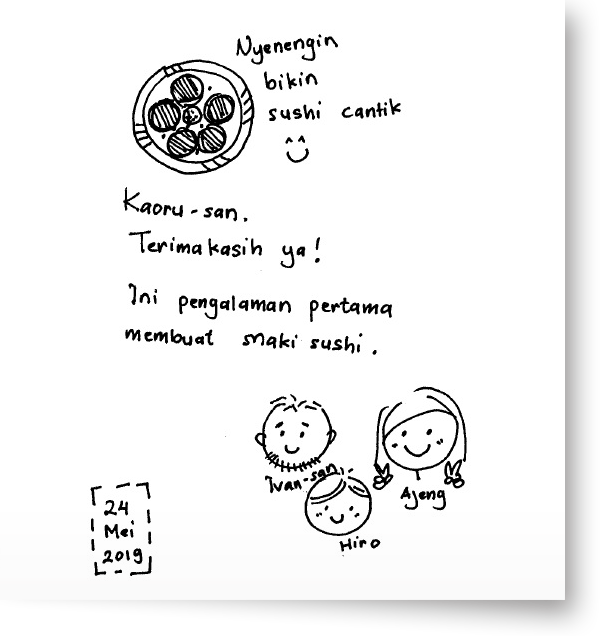 Nyenengin
bikin
sushi cantik
Kaoru-san.
Terimakasih ya!
Ini pengalaman pertama
membuat maki sushi.
Ivan-san
Ajeng
Hiro
24
Mei
2019